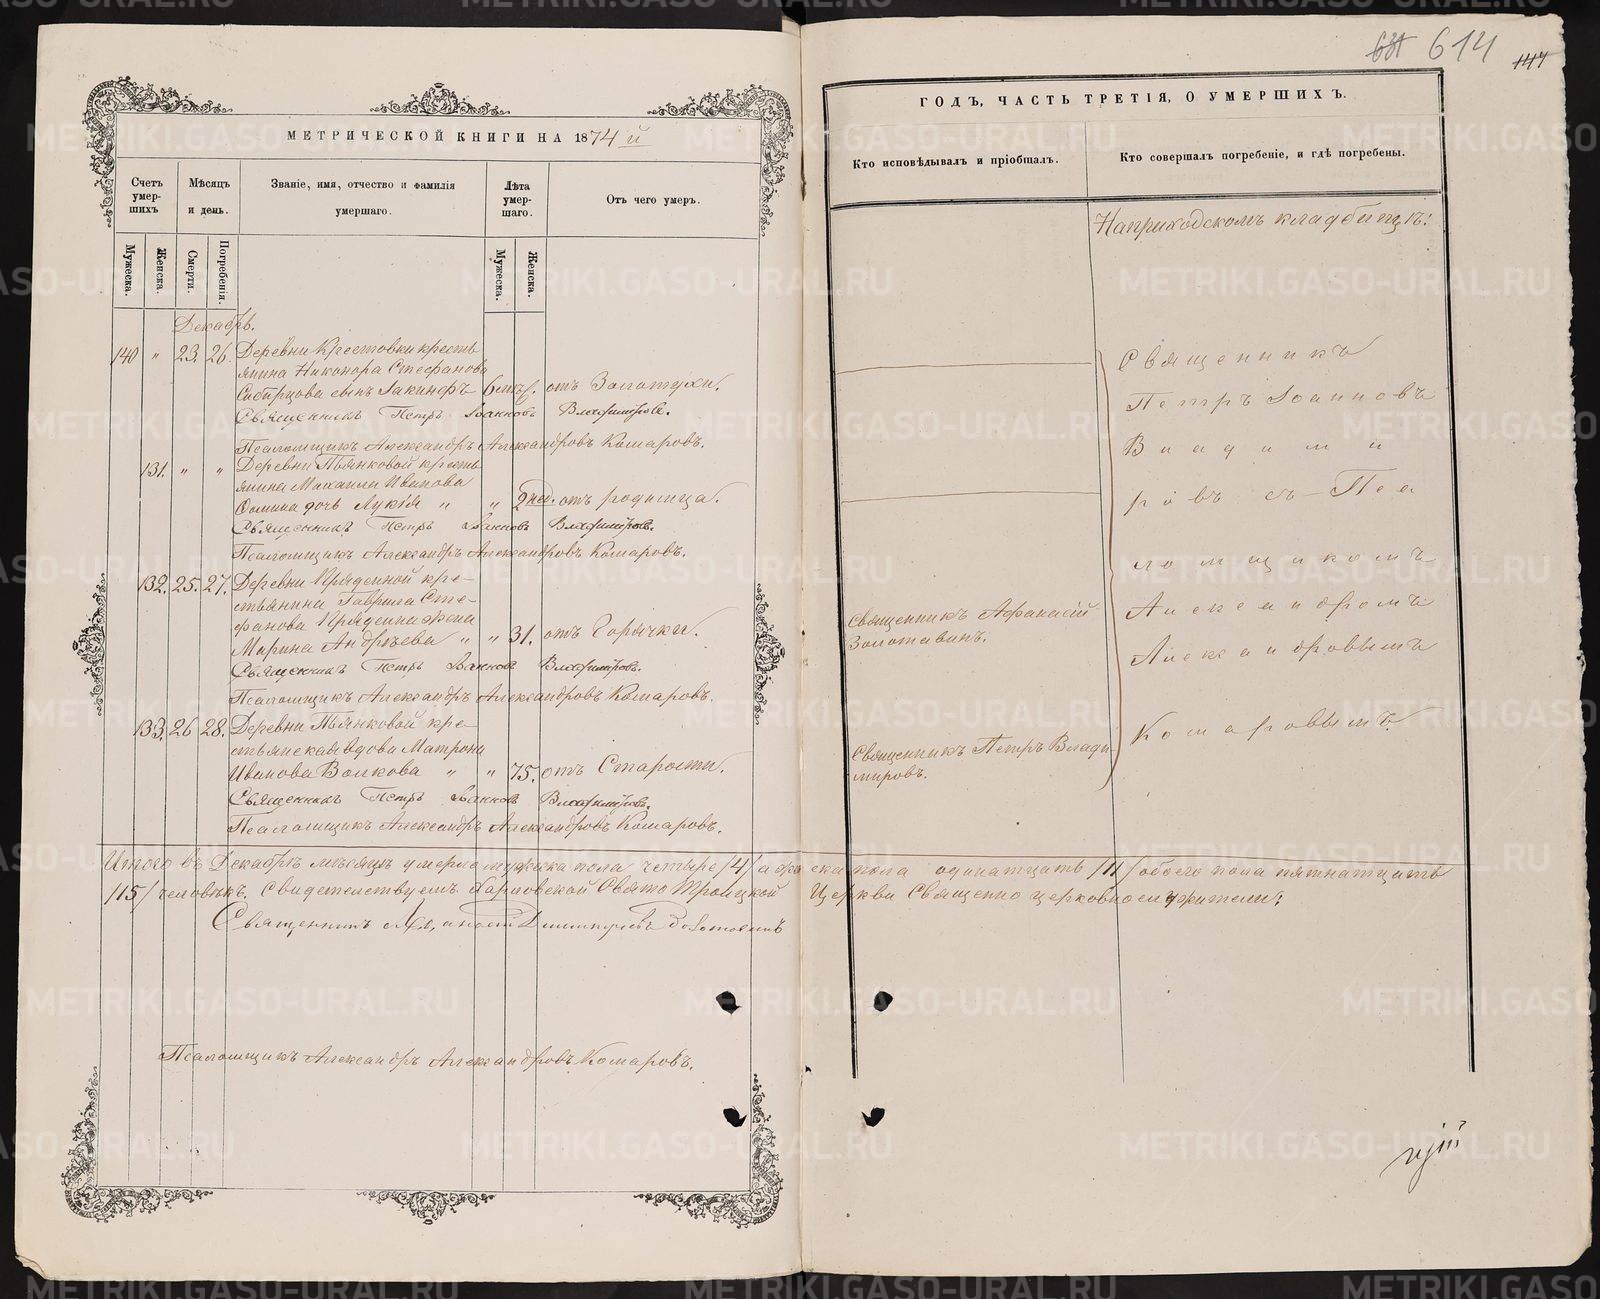 МЕТРИЧЕСКОЙ КНИГИ НА 1874 й
Счетъ умер-шихъ
Мѣсяцъ и день.
Званіе, имя, отчество и фамилія умершаго.
Лѣта умер-шаго.
Отъ чего умеръ.
Мужеска.
Женска.
Смерти.
Погребенія.
Мужеска.
Женска.
Декабрь.
140 " 23. 26. Деревни Крестовки кресть
янина Никонора Стефанова
Сибирцова сынъ Іакинфъ 6 отъ Золотухи.
Священникъ Петръ Іоанновъ Владимировъ.
Псаломщикъ Александръ Александровъ Комаровъ.
131. " " Деревни Пьянковой кресть
янина Михаила Иванова
Фомина дочь Лукія " " 2 нед. отъ родимца.
Священникъ Петръ Іоанновъ Владимировъ.
Псаломщикъ Александръ Александровъ Комаровъ.
132. 25. 27. Деревни Пряденной кре-
стьянина Гаврила Сте-
фанова Пряденна жена
Марина Андрѣева " " 31. отъ Горячки.
Священникъ Петръ Іоанновъ Владимировъ.
Псаломщикъ Александръ Александровъ Комаровъ.
133. 26 28. Деревни Пьянковой кре-
стьянская вдова Матрона
Иванова Волкова " " 75. отъ Старости.
Священникъ Петръ Іоанновъ Владимировъ.
Псаломщикъ Александръ Александровъ Комаровъ.
Итого въ Декабрѣ мѣсяцѣ умерло мужеска пола четыре /4/ а женска пола одинатцать /11/ обоего пола пятнатцать
/15/ человѣкъ. Свидетельствуемъ Харловской Свято Троицкой Церкви Священно церковнослужители:
Священникъ Аѳанасій Димитріевъ Золотавинъ
Псаломщикъ Александръ Александровъ Комаровъ.
631 614 147
ГОДЪ, ЧАСТЬ ТРЕТІЯ, О УМЕРШИХЪ.
Кто исповѣдывалъ и пріобщалъ.
Кто совершалъ погребеніе, и гдѣ погребены.
На приходскомъ кладбищѣ:
Священникъ
Петръ Іоанновъ
Владими
ровъ съ Пса
ломщикомъ
Александромъ
Александровымъ
Комаровымъ.
Священникъ Афанасій
Золотавинъ.
Священникъ Петръ Влади-
мировъ.
METRIKI.GASO-URAL.RU